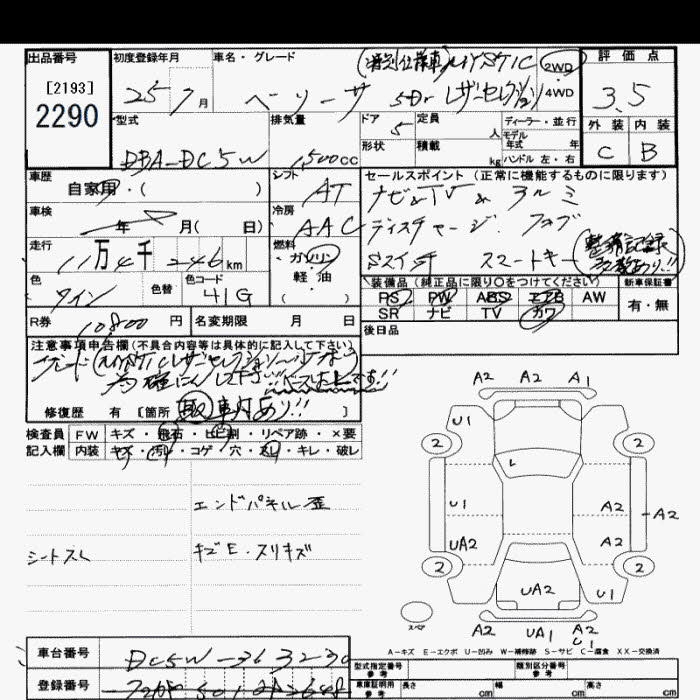 出品番号
[2193]
2290
初度登録年月
25 7 月
車名・グレード
ベリーサ 5Dr
(特別仕様車) MYSTIC
2WD
4WD
評価点
3.5
外装 内装
C B
型式
DBA-DC5W
排気量
1,500 cc
ドア
5
定員
人
形状
積載
kg
ディーラー・並行
モデル
年式 年
ハンドル 左・右
車歴
自家用・( )
シフト
AT
車検
年 月( 日)
冷房
AAC
走行
11万4千246km
燃料
ガソリン
軽・油
( )
色
ワイン
色替
色コード
41G
R券
10800 円
名変期限 月 日
セールスポイント(正常に機能するものに限ります)
ナビ&TV & アルミ
ディスチャージ.フォグ
Sスイッチ スマートキー
(整備記録
多数あり!!)
装備品(純正品に限り○をつけてください)
PS PW ABS エアB AW
SR ナビ TV カワ
新車保証書
有・無
後日品
注意事項申告欄(不具合内容等は具体的に記入して下さい)
修復歴 有 [箇所 ]
検査員
記入欄
FW キズ・飛石・ヒビ割・リペア跡・×要
内装 キズ・汚れ・コゲ・穴・スレ・キレ・破レ
エンドパネル歪
シートスレ
キズE.スリキズ
A2 A2 A1
U1
2 2
L
U1 A2 A2
UA2 A2
2 2
UA2 U1
スペア
A2 UA1 A2
U1
A-キズ E-エクボ U-凹み W-補修跡 S-サビ C-腐食 XX-交換済
車台番号
DC5W-363230
登録番号
型式指定番号
参考
類別区分番号
参考
車庫証明用
参考
長さ cm 幅 cm 高さ cm